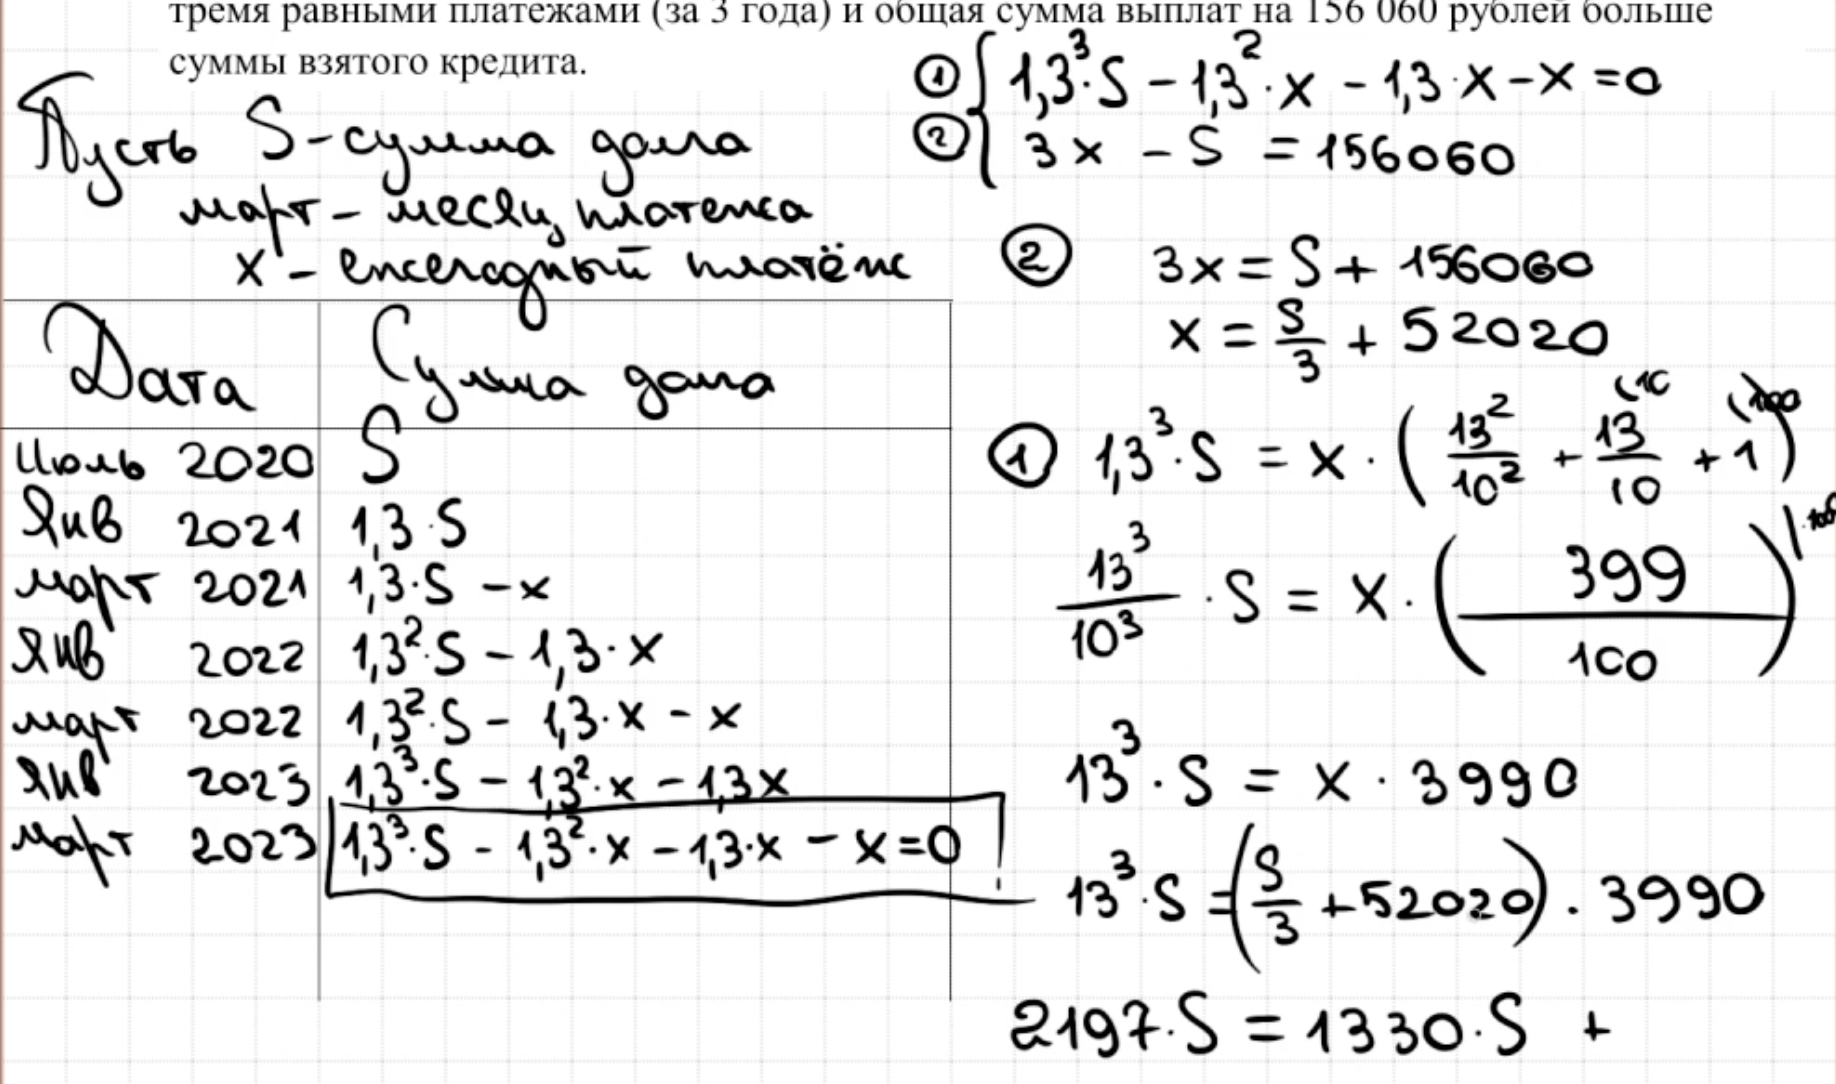 тремя равными платежами (за 3 года) и общая сумма выплат на 156 060 рублей больше
суммы взятого кредита.
Пусть S - сумма долга
март - месяц платежа
x - ежегодный платёж
Дата Сумма долга
Июль 2020 S
Янв 2021 1,3·S
март 2021 1,3·S - x
Янв 2022 1,3²·S - 1,3·x
март 2022 1,3²·S - 1,3·x - x
Янв 2023 1,3³·S - 1,3²·x - 1,3x
март 2023 1,3³·S - 1,3²·x - 1,3·x - x = 0
① { 1,3³·S - 1,3²·x - 1,3·x - x = 0
② { 3x - S = 156060
② 3x = S + 156060
x = S/3 + 52020
① 1,3³·S = x·(13²/10² + 13/10 (10 + 1 (100)
13³/10³ · S = x·(399/100) |·1000
13³·S = x·3990
13³·S = (S/3 + 52020)·3990
2197·S = 1330·S +